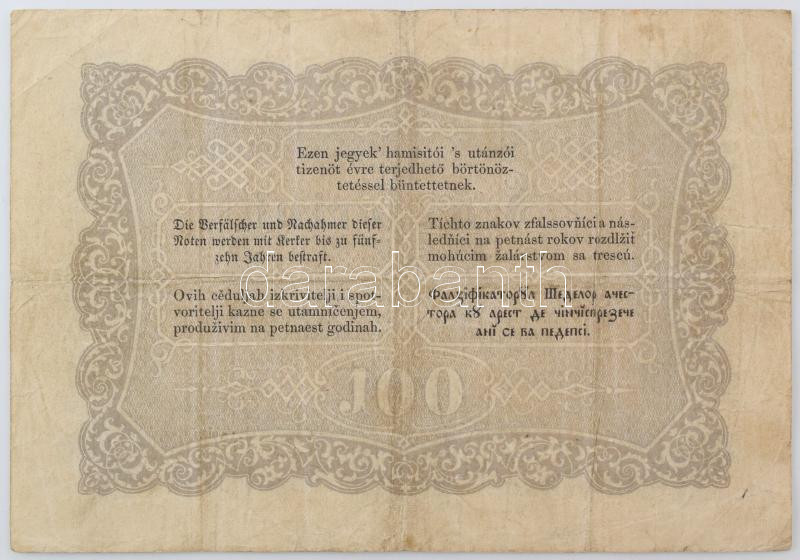 Ezen jegyek' hamisitói 's utánzói
tizenöt évre terjedhető börtönöz-
tetéssel büntettetnek.
Die Verfälscher und Nachahmer dieser
Noten werden mit Kerker bis zu fünf-
zehn Jahren bestraft.
Tíchto znakov zfalssovňíci a nás-
ledňíci na petnást rokov rozdlžiť
mohúcim žalárstvom sa trescú.
Ovih cěduljah izkrivitelji i spot-
voritelji kazne se utamničenjem,
produživim na petnaest godinah.
Фалзіфікаторꙋл Шеделор ачес-
тора кꙋ арест де чінчіспрезече
анї се ва педепсі.
100
darabanth